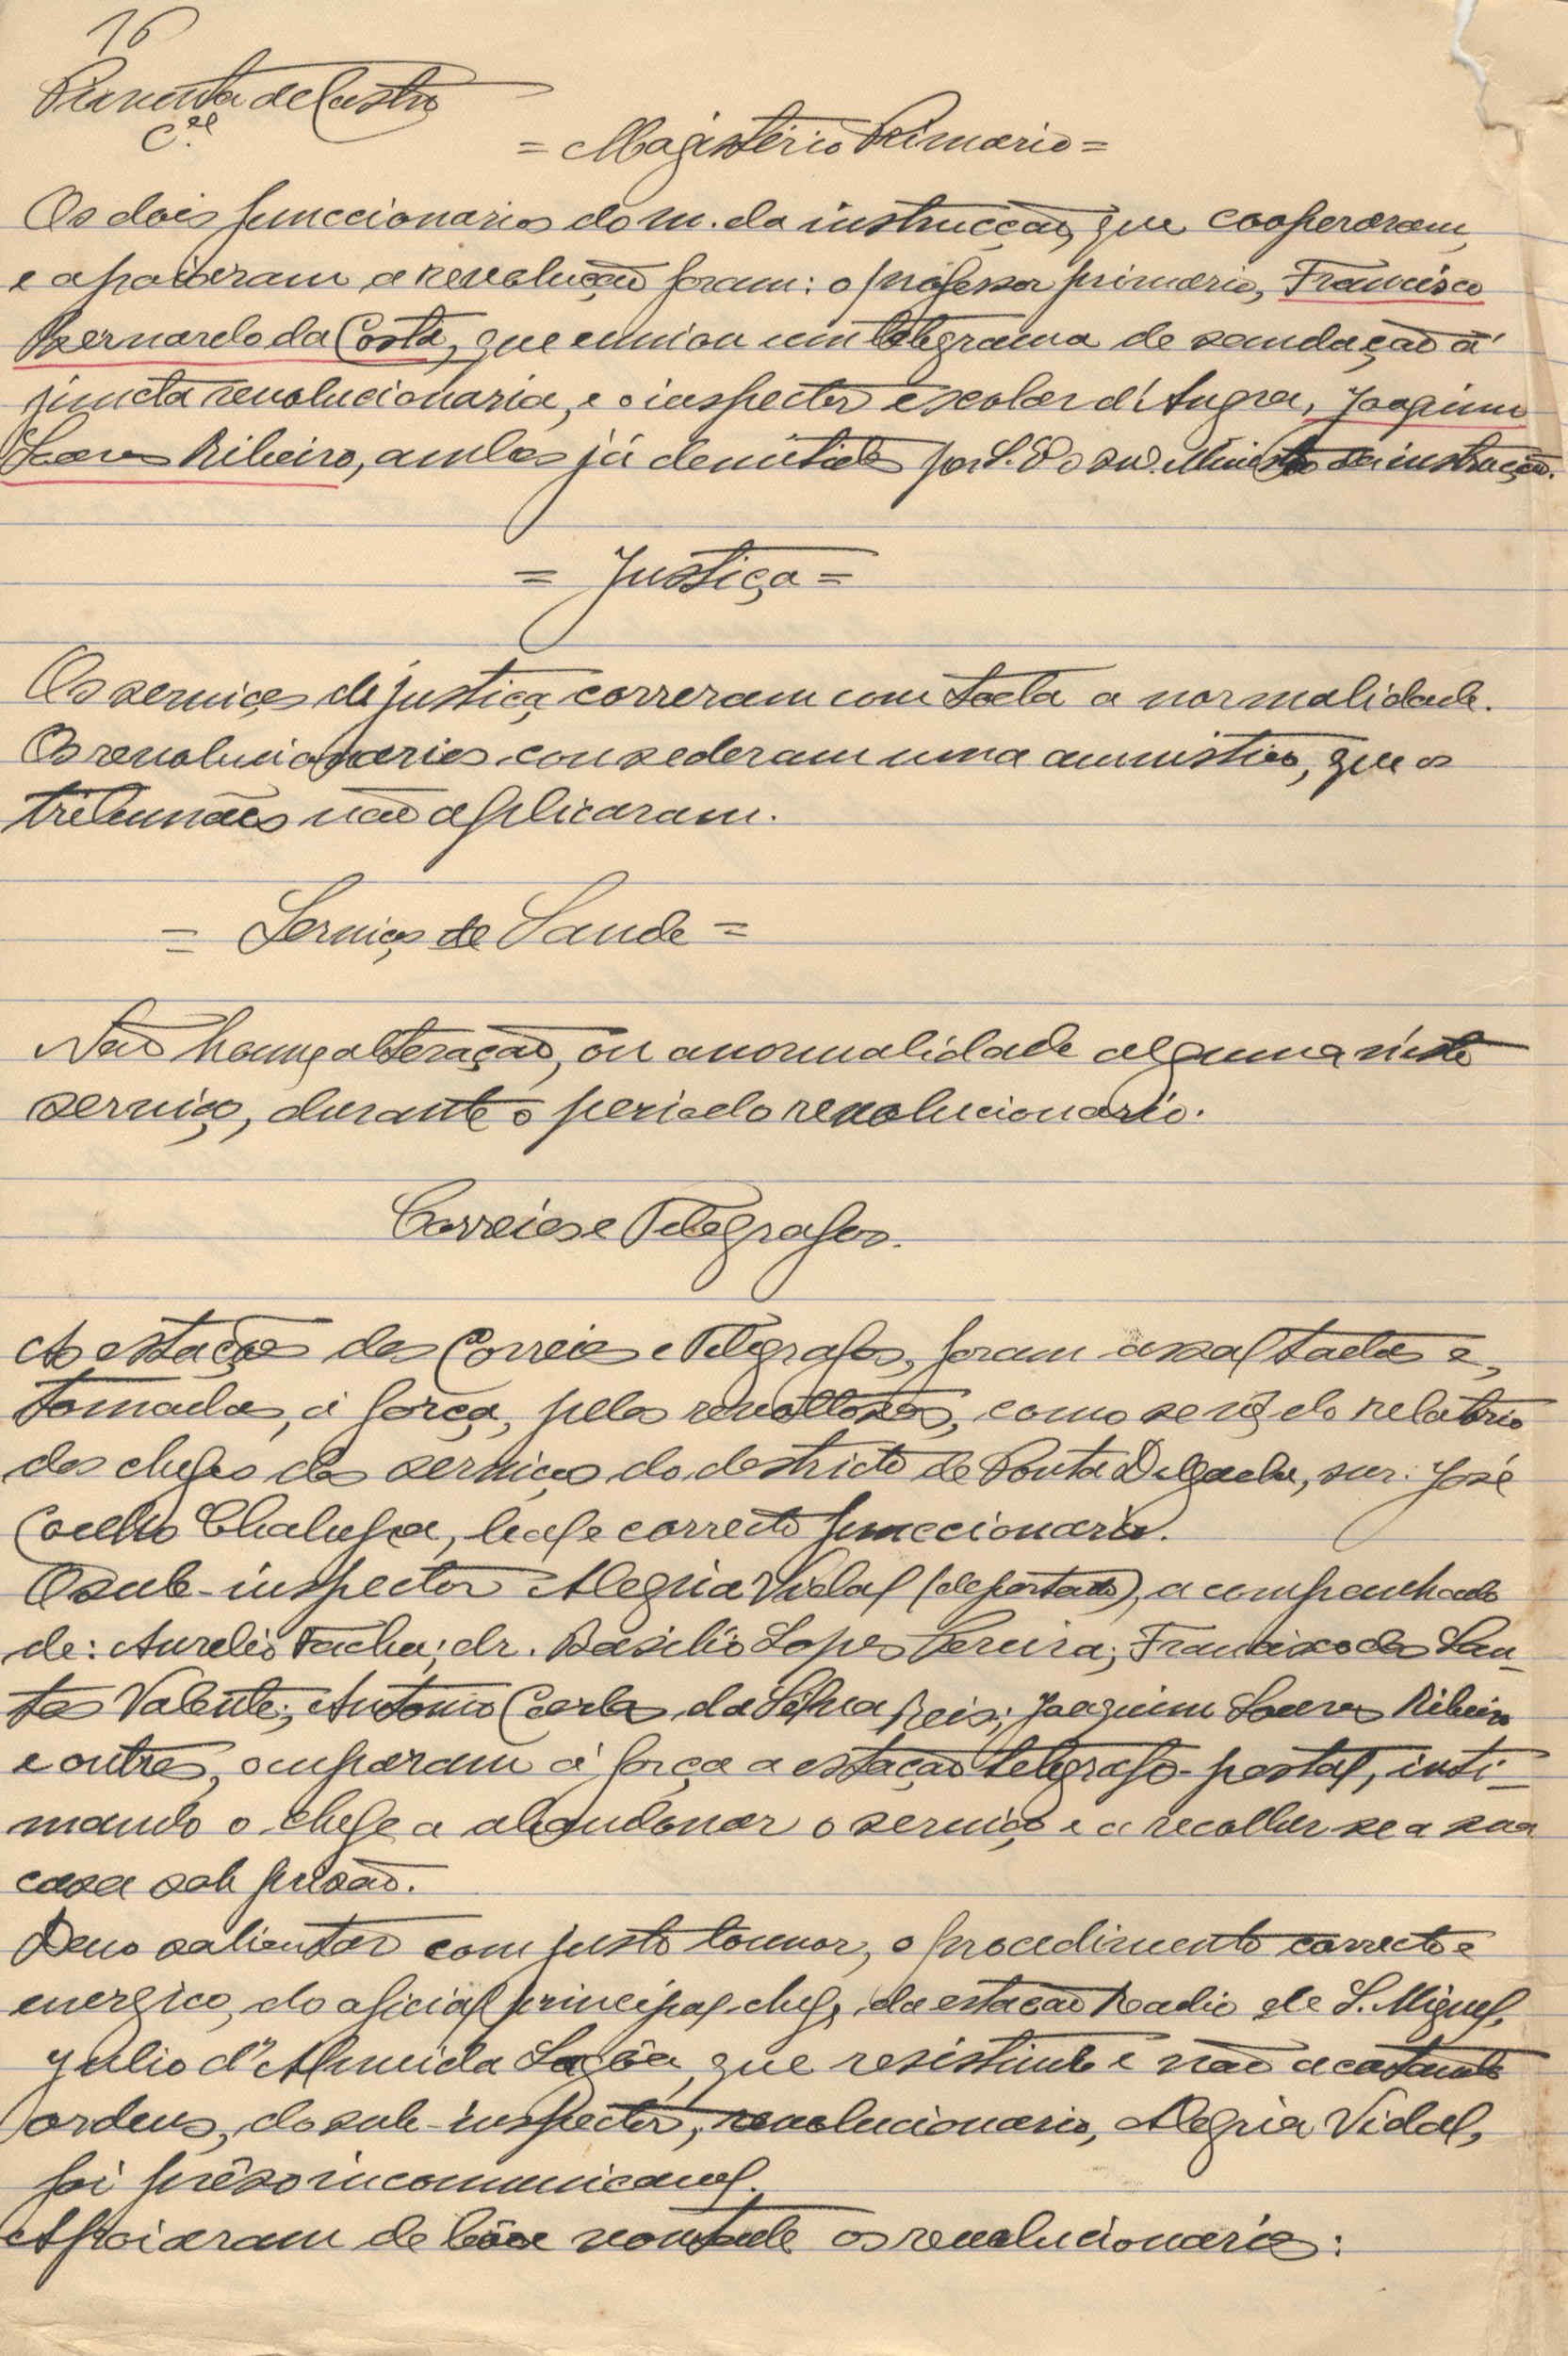 16
Pimenta de Castro
C.el
= Magistério Primario =
Os dois funccionarios do m. da instrucção, que cooperaram,
e apoiaram a revolução foram: o professor primario, Francisco
Bernardo da Costa, que enviou um telegrama de saudação á
juncta revolucionaria, e o inspector escolar d'Angra, Joaquim
Soares Ribeiro, ambos já demitidos por S. Exª o snr. Ministro da instrução.
= Justiça =
Os serviços de justiça correram com toda a normalidade.
Os revolucionarios consederam uma amnistia, que os
tribunáes não aplicaram.
= Serviços de Saude =
Não houve alteração, ou anormalidade alguma n'este
serviço, durante o periodo revolucionario.
Correios e Telegrafos.
As estações dos Correios e Telegrafos, foram assaltadas e,
tomadas, á força, pelos revoltosos, como se vê do relatorio
dos chefes dos serviços do destricto de Ponta Delgada, snr. José
Coelho Chalupa, leal e correcto funccionario.
O sub-inspector Alegria Vidal (deportado), acompanhado
de: Aurelio Tacha; dr. Basilio Lopes Pereira; Francisco dos San-
tos Valente; Antonio Carlos da Silva Reis; Joaquim Soares Ribeiro
e outros, ocuparam á força a estação telegrafo-postal, inti-
mando o chefe a abandonar o serviço e a recolher se a sua
casa sob prisão.
Devo salientar com justo louvor, o procedimento correcto e
energico, do oficial principal chefe da estação Radio de S. Miguel,
Julio d'Almeida Lagôa, que resistindo e não acatando
ordens, do sub-inspector, revolucionario, Alegria Vidal,
foi prêso incomunicavel.
Apoiaram de bôa vontade os revolucionarios: